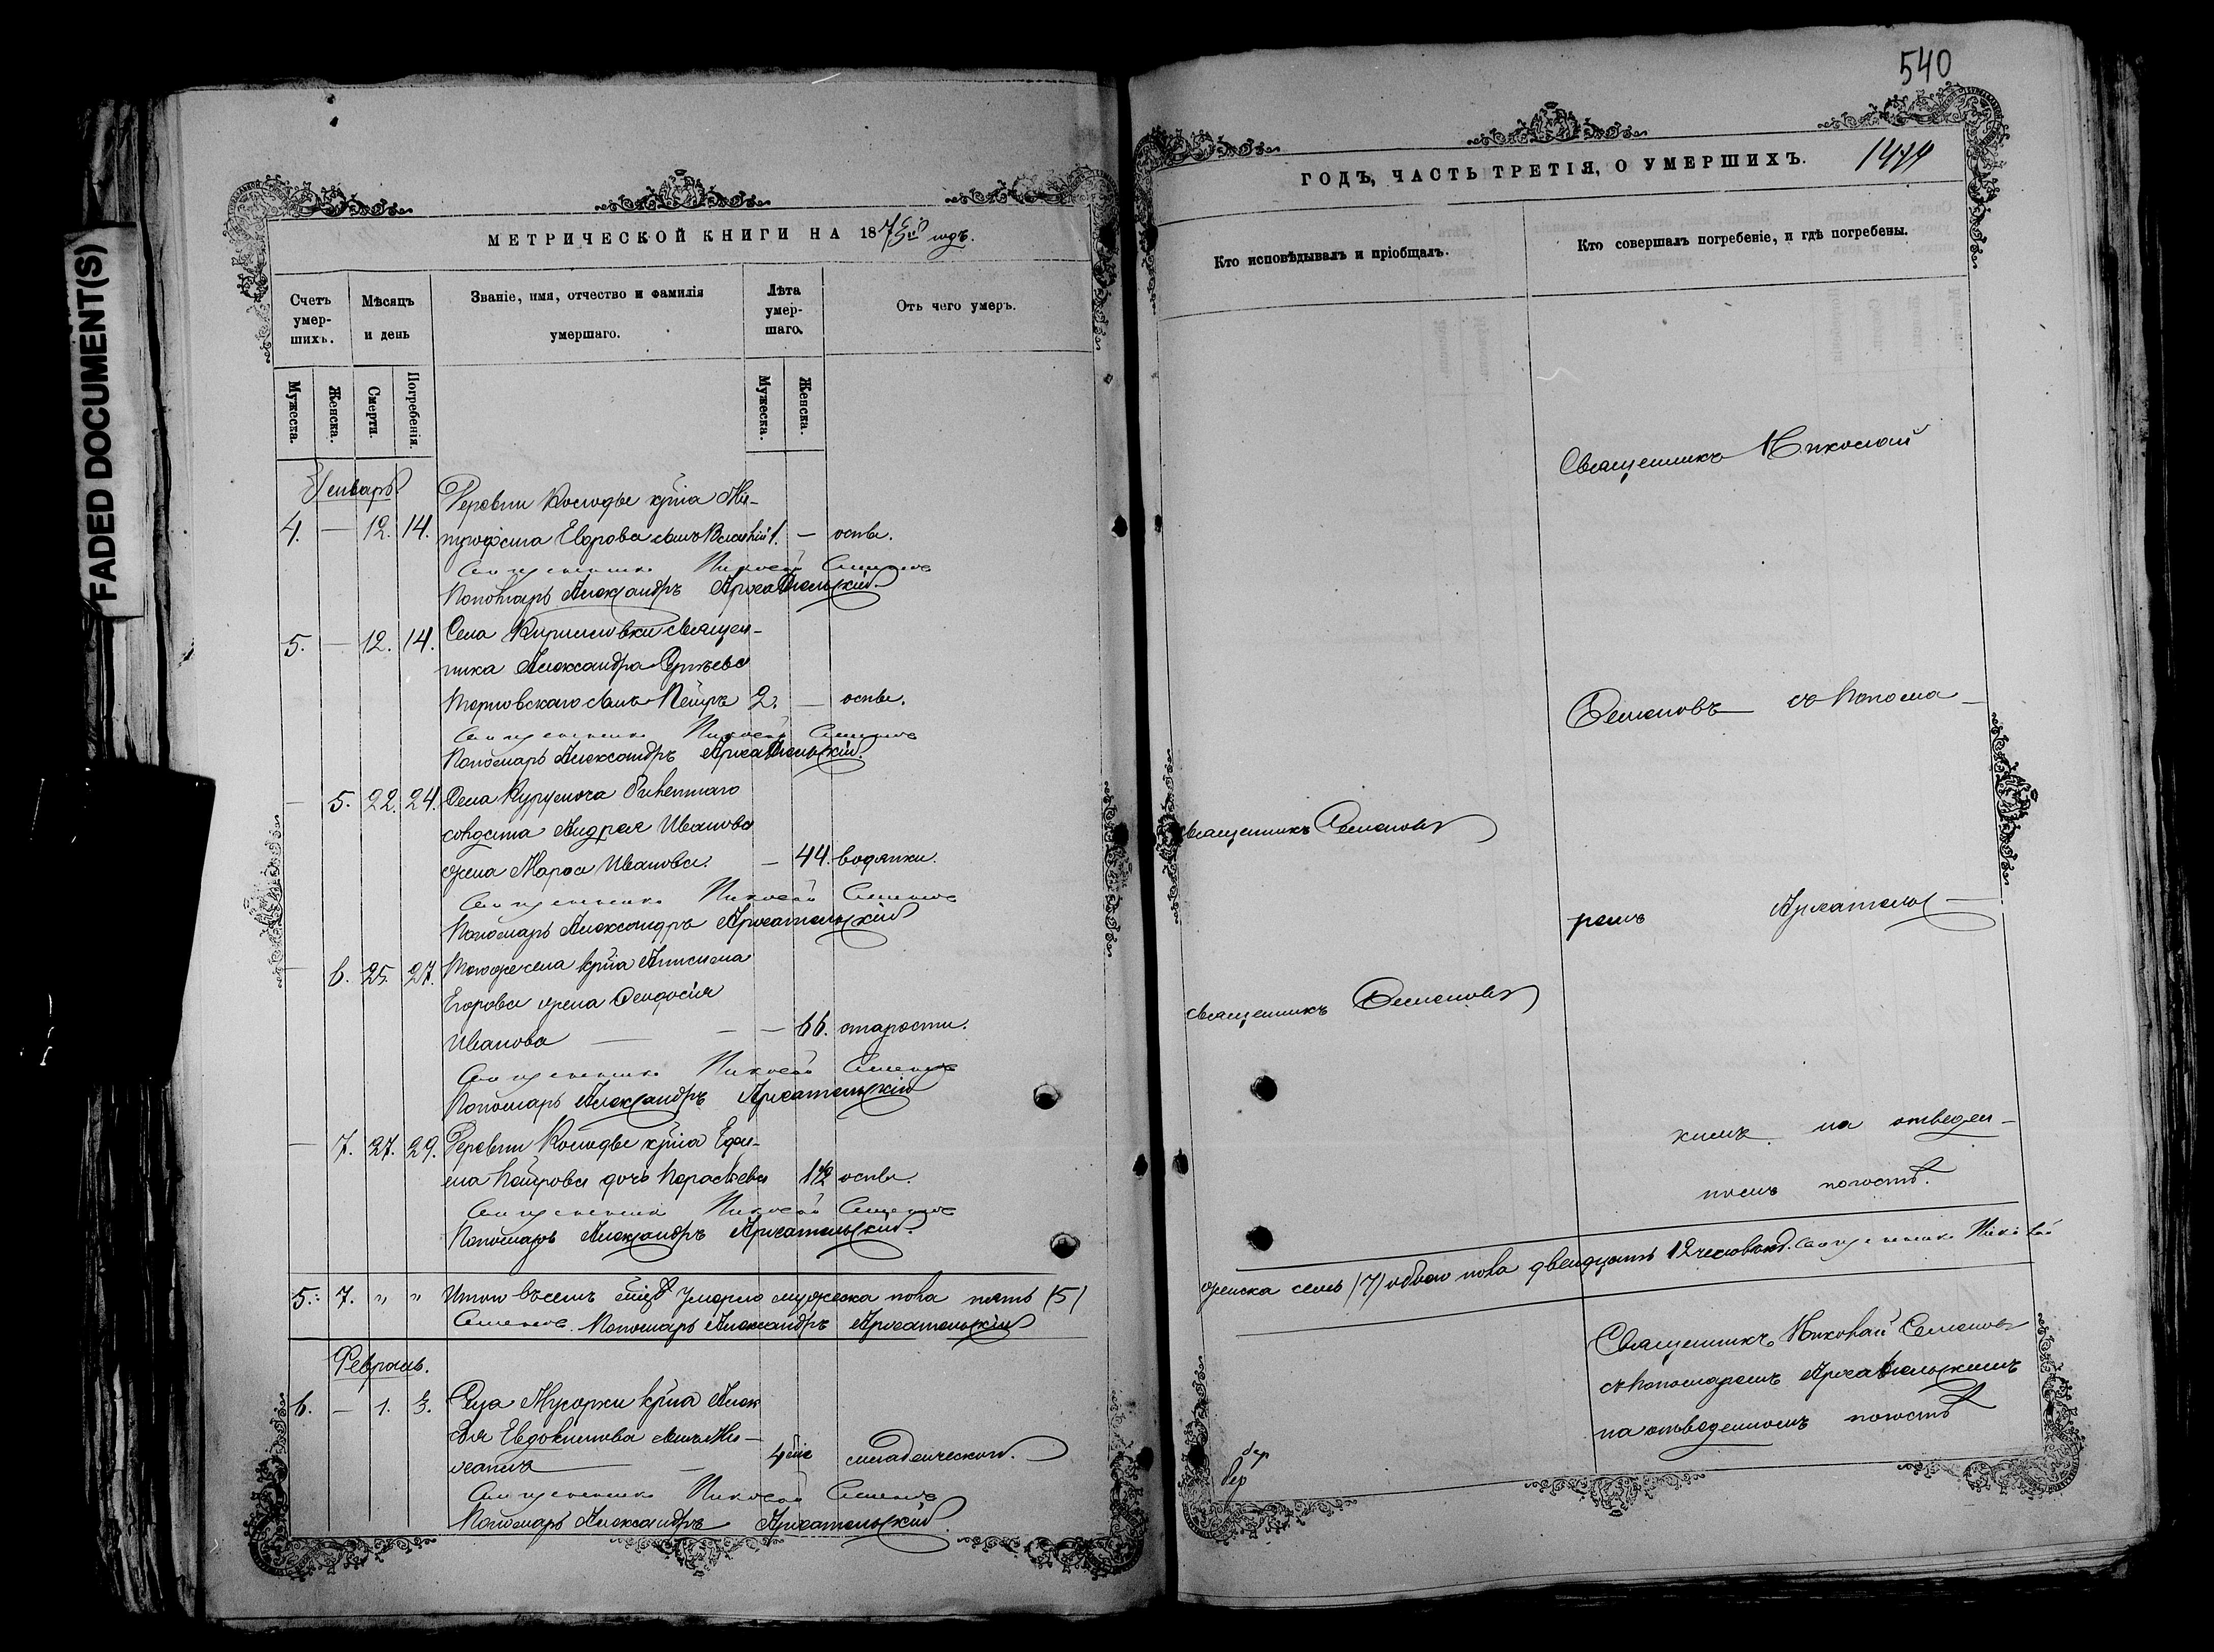 FADED DOCUMENT(S)
МЕТРИЧЕСКОЙ КНИГИ НА 1875й годъ.
Счетъ умер-шихъ.
Мѣсяцъ и день
Званіе, имя, отчество и фамилія умершаго.
Лѣта умер-шаго.
Отъ чего умеръ.
Мужеска.
Женска.
Смерти.
Погребенія.
Мужеска.
Женска.
Январь
Деревни Колодье кр̃на Ми-
4. — 12. 14. трофана Егорова сынъ Василій 1. — оспы.
Священникъ Николай Семеновъ
Пономарь Александръ Архангельскій
5. — 12. 14. Села Кирилловки священ-
ника Александра
сынъ Петръ 2. — оспы.
Священникъ Николай Семеновъ
Пономарь Александръ Архангельскій
— 5. 22. 24. Села
солдата Андрея Иванова
жена Марѳа Иванова. — 44. водянки.
Священникъ Николай Семеновъ
Пономарь Александръ Архангельскій
— 6. 25. 27. Того же села кр̃на Анисима
Егорова жена Ѳеодосія
Иванова — — — 66. старости.
Священникъ Николай Семеновъ
Пономарь Александръ Архангельскій
— 7. 27. 29. Деревни Колодье кр̃на Ефи-
ма Петрова дочь Параскева 1 1/2 оспы.
Священникъ Николай Семеновъ
Пономарь Александръ Архангельскій
5. 7. " " Итого въ семъ м̃цѣ умерло мужеска пола пять (5)
Семеновъ. Пономарь Александръ Архангельскій
Февраль.
6. — 1. 3. Села кр̃на Алек
Евдокимова сынъ Ми-
хаилъ — — 4 младенческой.
Священникъ Николай Семеновъ
Пономарь Александръ Архангельскій
540
ГОДЪ, ЧАСТЬ ТРЕТІЯ, О УМЕРШИХЪ.
Кто исповѣдывалъ и пріобщалъ.
Кто совершалъ погребеніе, и гдѣ погребены.
Священникъ Николай
Семеновъ съ понома-
священникъ Семеновъ
ремъ Архангельс-
священникъ Семеновъ
кимъ на отведен-
номъ погостѣ.
женска семь (7) обоего пола двенадцать 12 человѣкъ. Священникъ Николай
Священникъ Николай Семеновъ
съ пономаремъ Архангельскимъ
на отведенномъ погостѣ